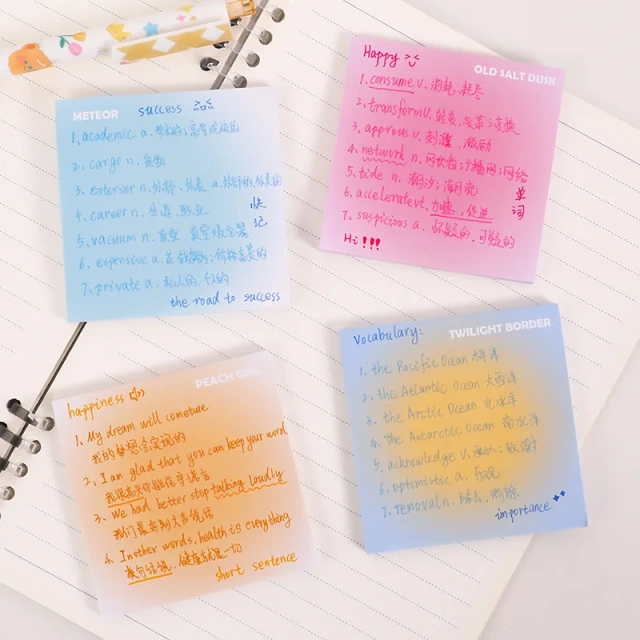 METEOR
success
1、academic a. 学术的；高等教育的
2、cargo n. 货物
3、exterior n. 外部、外表 a. 外部的、外表的
4、career n. 生涯、职业
5、vacuum n. 真空、真空吸尘器
6、expensive a. 花钱多的；价格高昂的
7、private a. 私人的、个人的
快记
the road to success
Happy
OLD SALT DUSK
1、consume v. 消耗、耗尽
2、transform v. 转变、改革；变换
3、approve v.
4、network n. 网络
5、tide n. 潮汐；潮流
6、accelerate vt. 加速、促进
7、suspicious a. 怀疑的、可疑的
单词
Hi!!!
PEACH
happiness
1、My dream will cometure
我的梦想会实现的
2、I an glad that you can keep your word
我很高兴你能信守诺言
3、We had better stop talking loudly
我们最好别大声说话
4、In other words, health is everything
换句话说，健康就是一切
short sentence
Vocabulary:
TWILIGHT BORDER
1、the Pacific Ocean 太平洋
2、the Atlantic Ocean 大西洋
3、the Arctic Ocean 北冰洋
4、the Antarctic Ocean 南冰洋
5、acknowledge v. 承认；致谢
6、optimistic a. 乐观
7、removal n. 除去、消除
importance